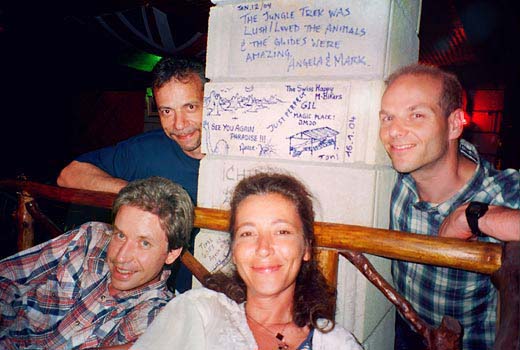 JAN.12/04
THE JUNGLE TREK WAS
LUSH I LOVED THE ANIMALS
& THE GUIDES WERE
AMAZING.
ANGELA & MARK.
The Swiss Happy
M-Bikers
GIL
JUST PERFECT
MAGIC PLACE!
SEE YOU AGAIN
PARADISE !!!
Toni
16.1.04